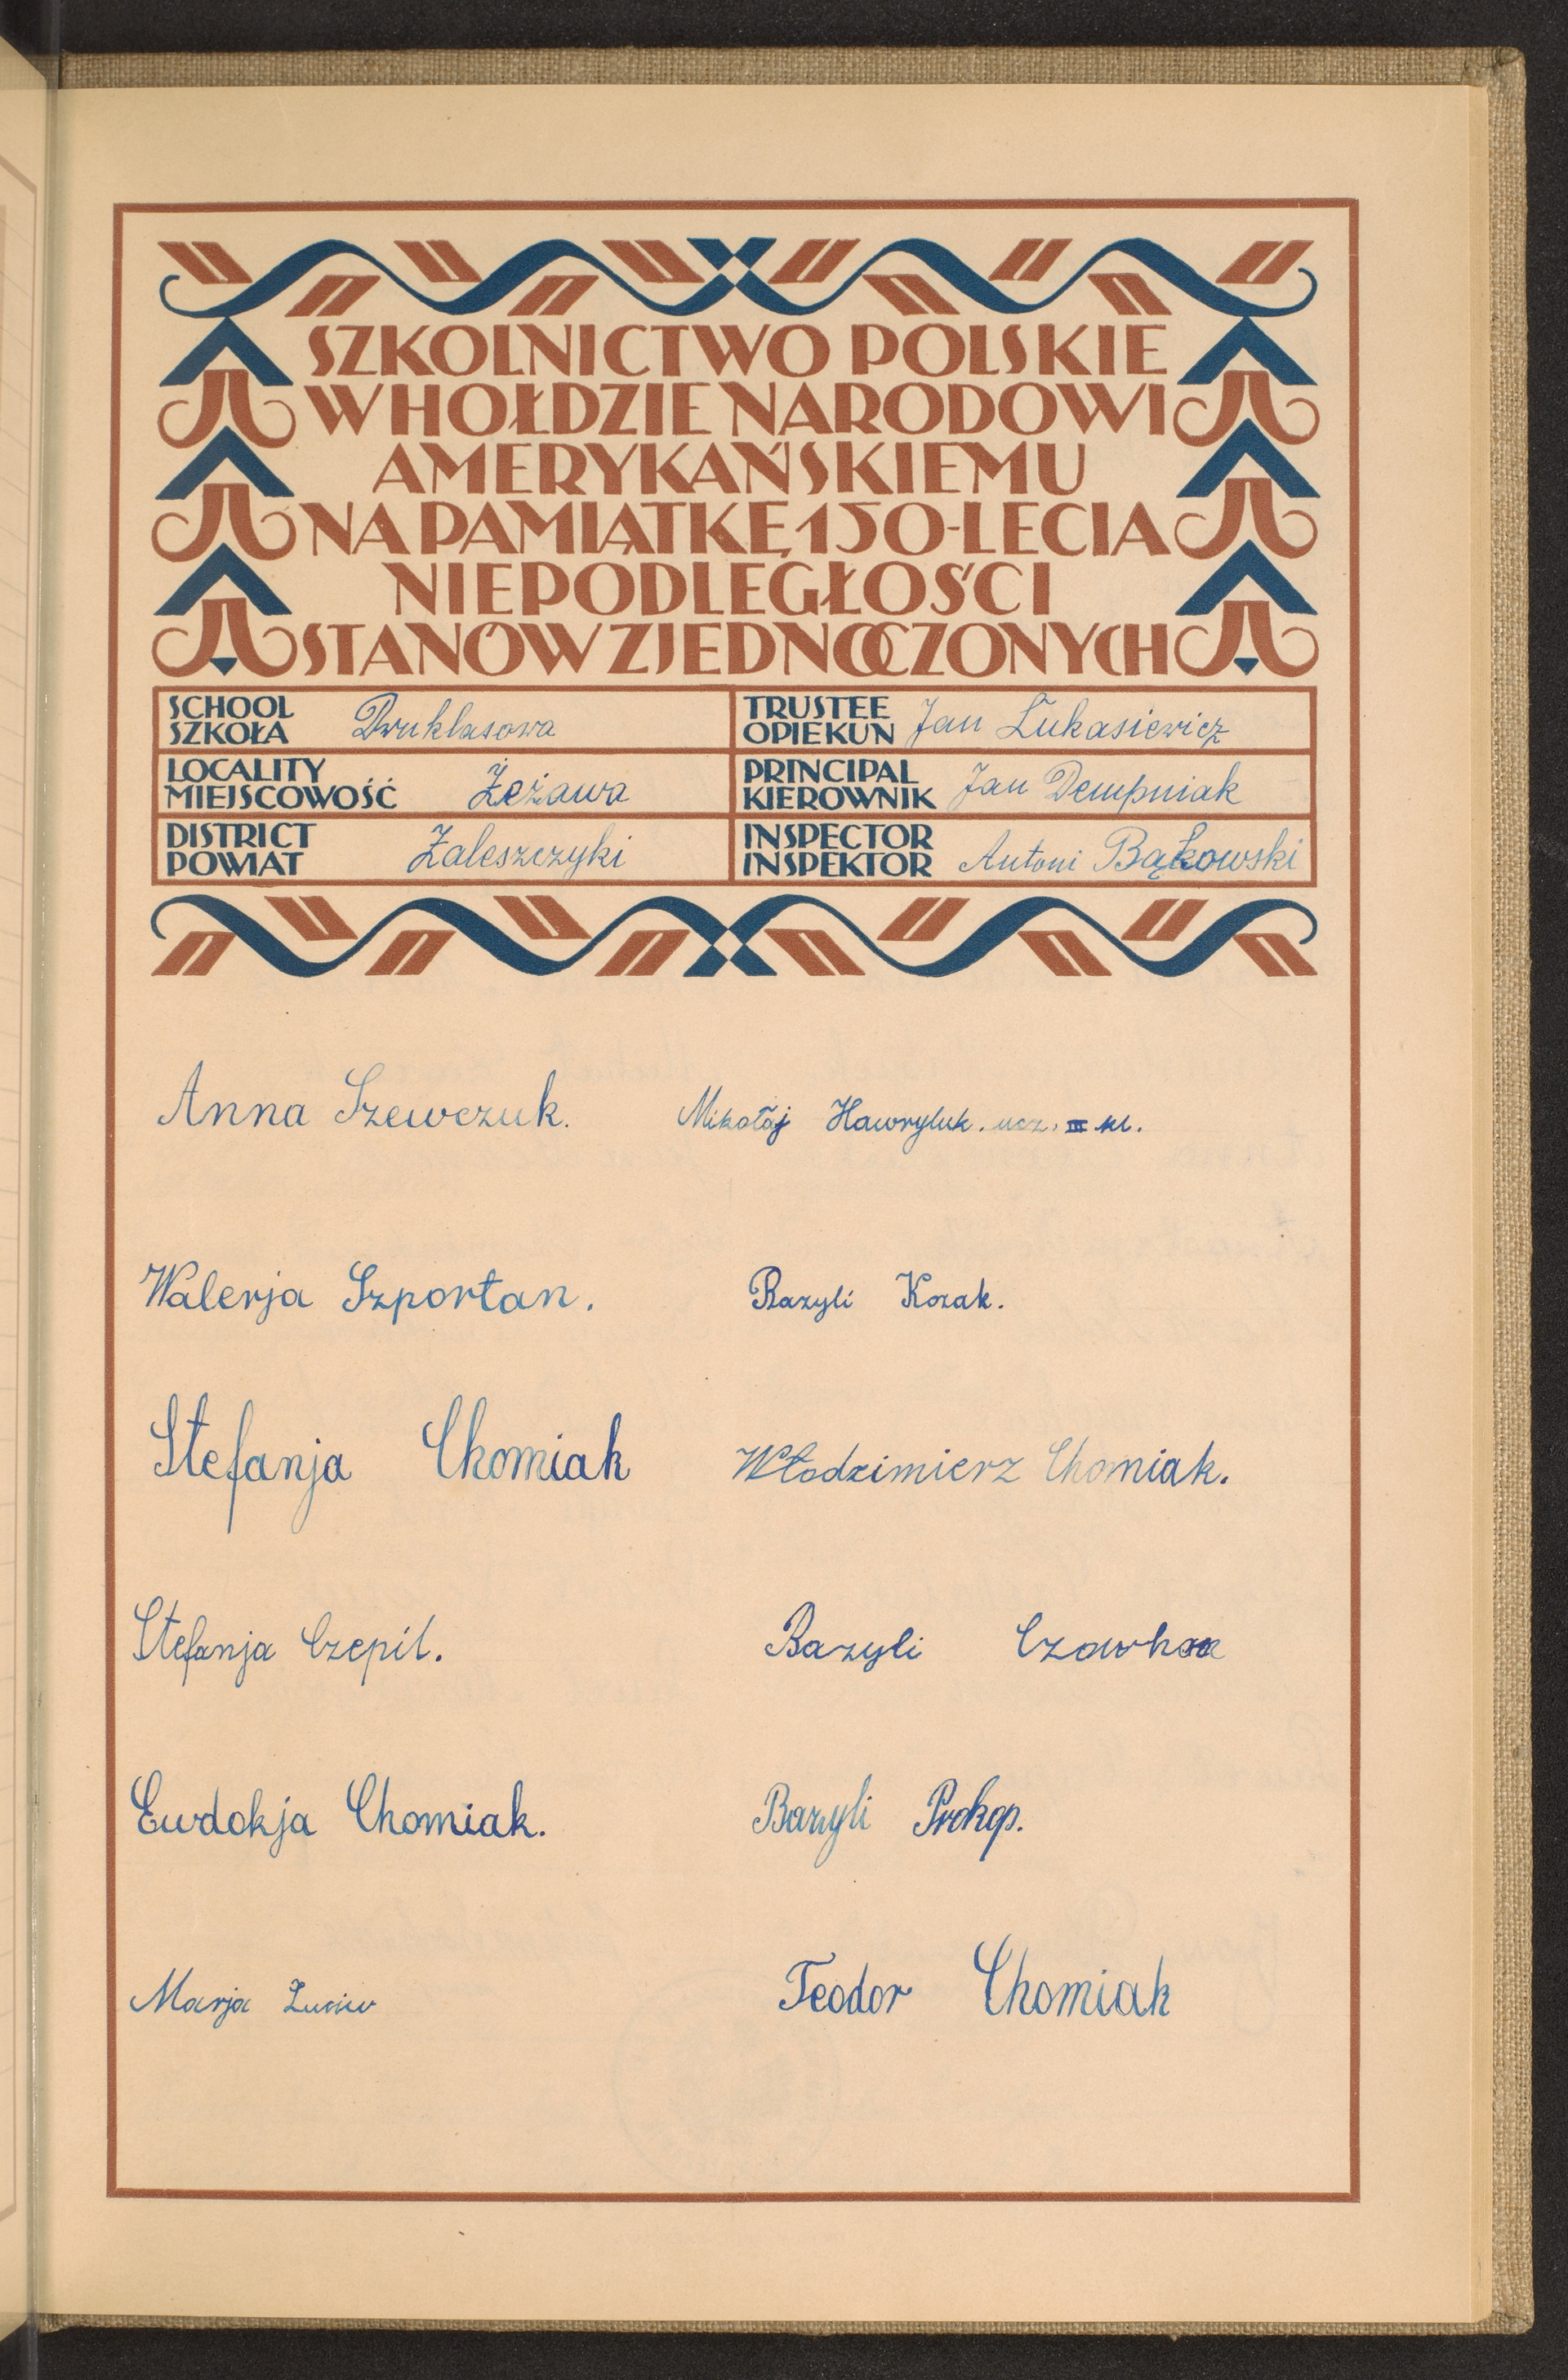 SZKOLNICTWO POLSKIE
W HOŁDZIE NARODOWI
AMERYKAŃSKIEMU
NA PAMIĄTKĘ 150-LECIA
NIEPODLEGŁOŚCI
STANÓW ZJEDNOCZONYCH
SCHOOL
SZKOŁA Dwuklasowa
TRUSTEE
OPIEKUN Jan Łukasiewicz
LOCALITY
MIEJSCOWOŚĆ Żeżawa
PRINCIPAL
KIEROWNIK Jan Dempniak
DISTRICT
POWIAT Zaleszczyki
INSPECTOR
INSPEKTOR Antoni Bąkowski
Anna Szewczuk. Mikołaj Hawryluk. ucz. III kl.
Walerja Szportan. Bazyli Kozak.
Stefanja Chomiak Włodzimierz Chomiak.
Stefanja Czepil. Bazyli
Ewdokja Chomiak. Bazyli Prokop.
Marja Teodor Chomiak